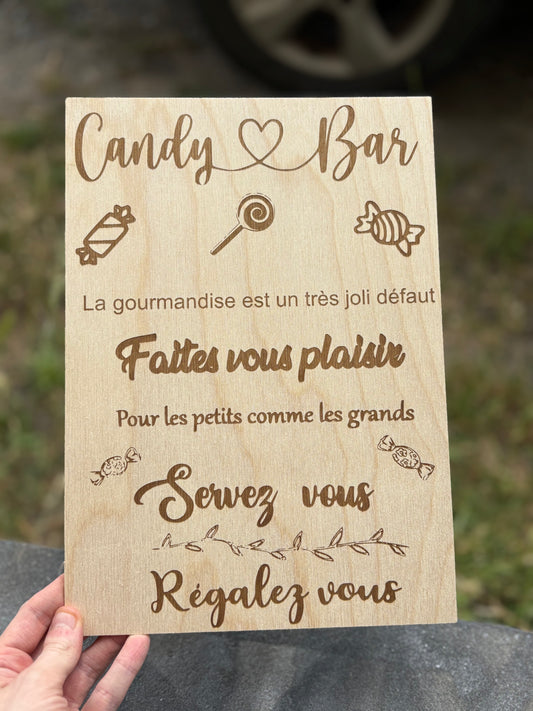 Candy Bar
La gourmandise est un très joli défaut
Faites vous plaisir
Pour les petits comme les grands
Servez vous
Régalez vous